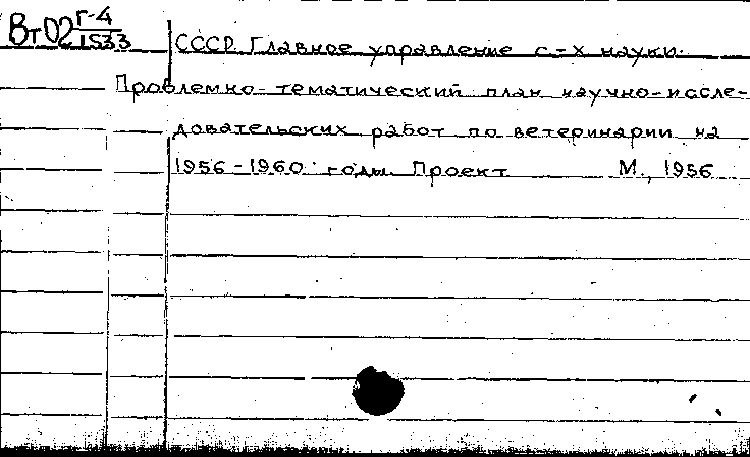 Вт02 Г-4
1533
СССР Главное управление с-х науки.
Проблемно-тематический план научно-иссле-
довательских работ по ветеринарии на
1956-1960 годы. Проект М., 1956